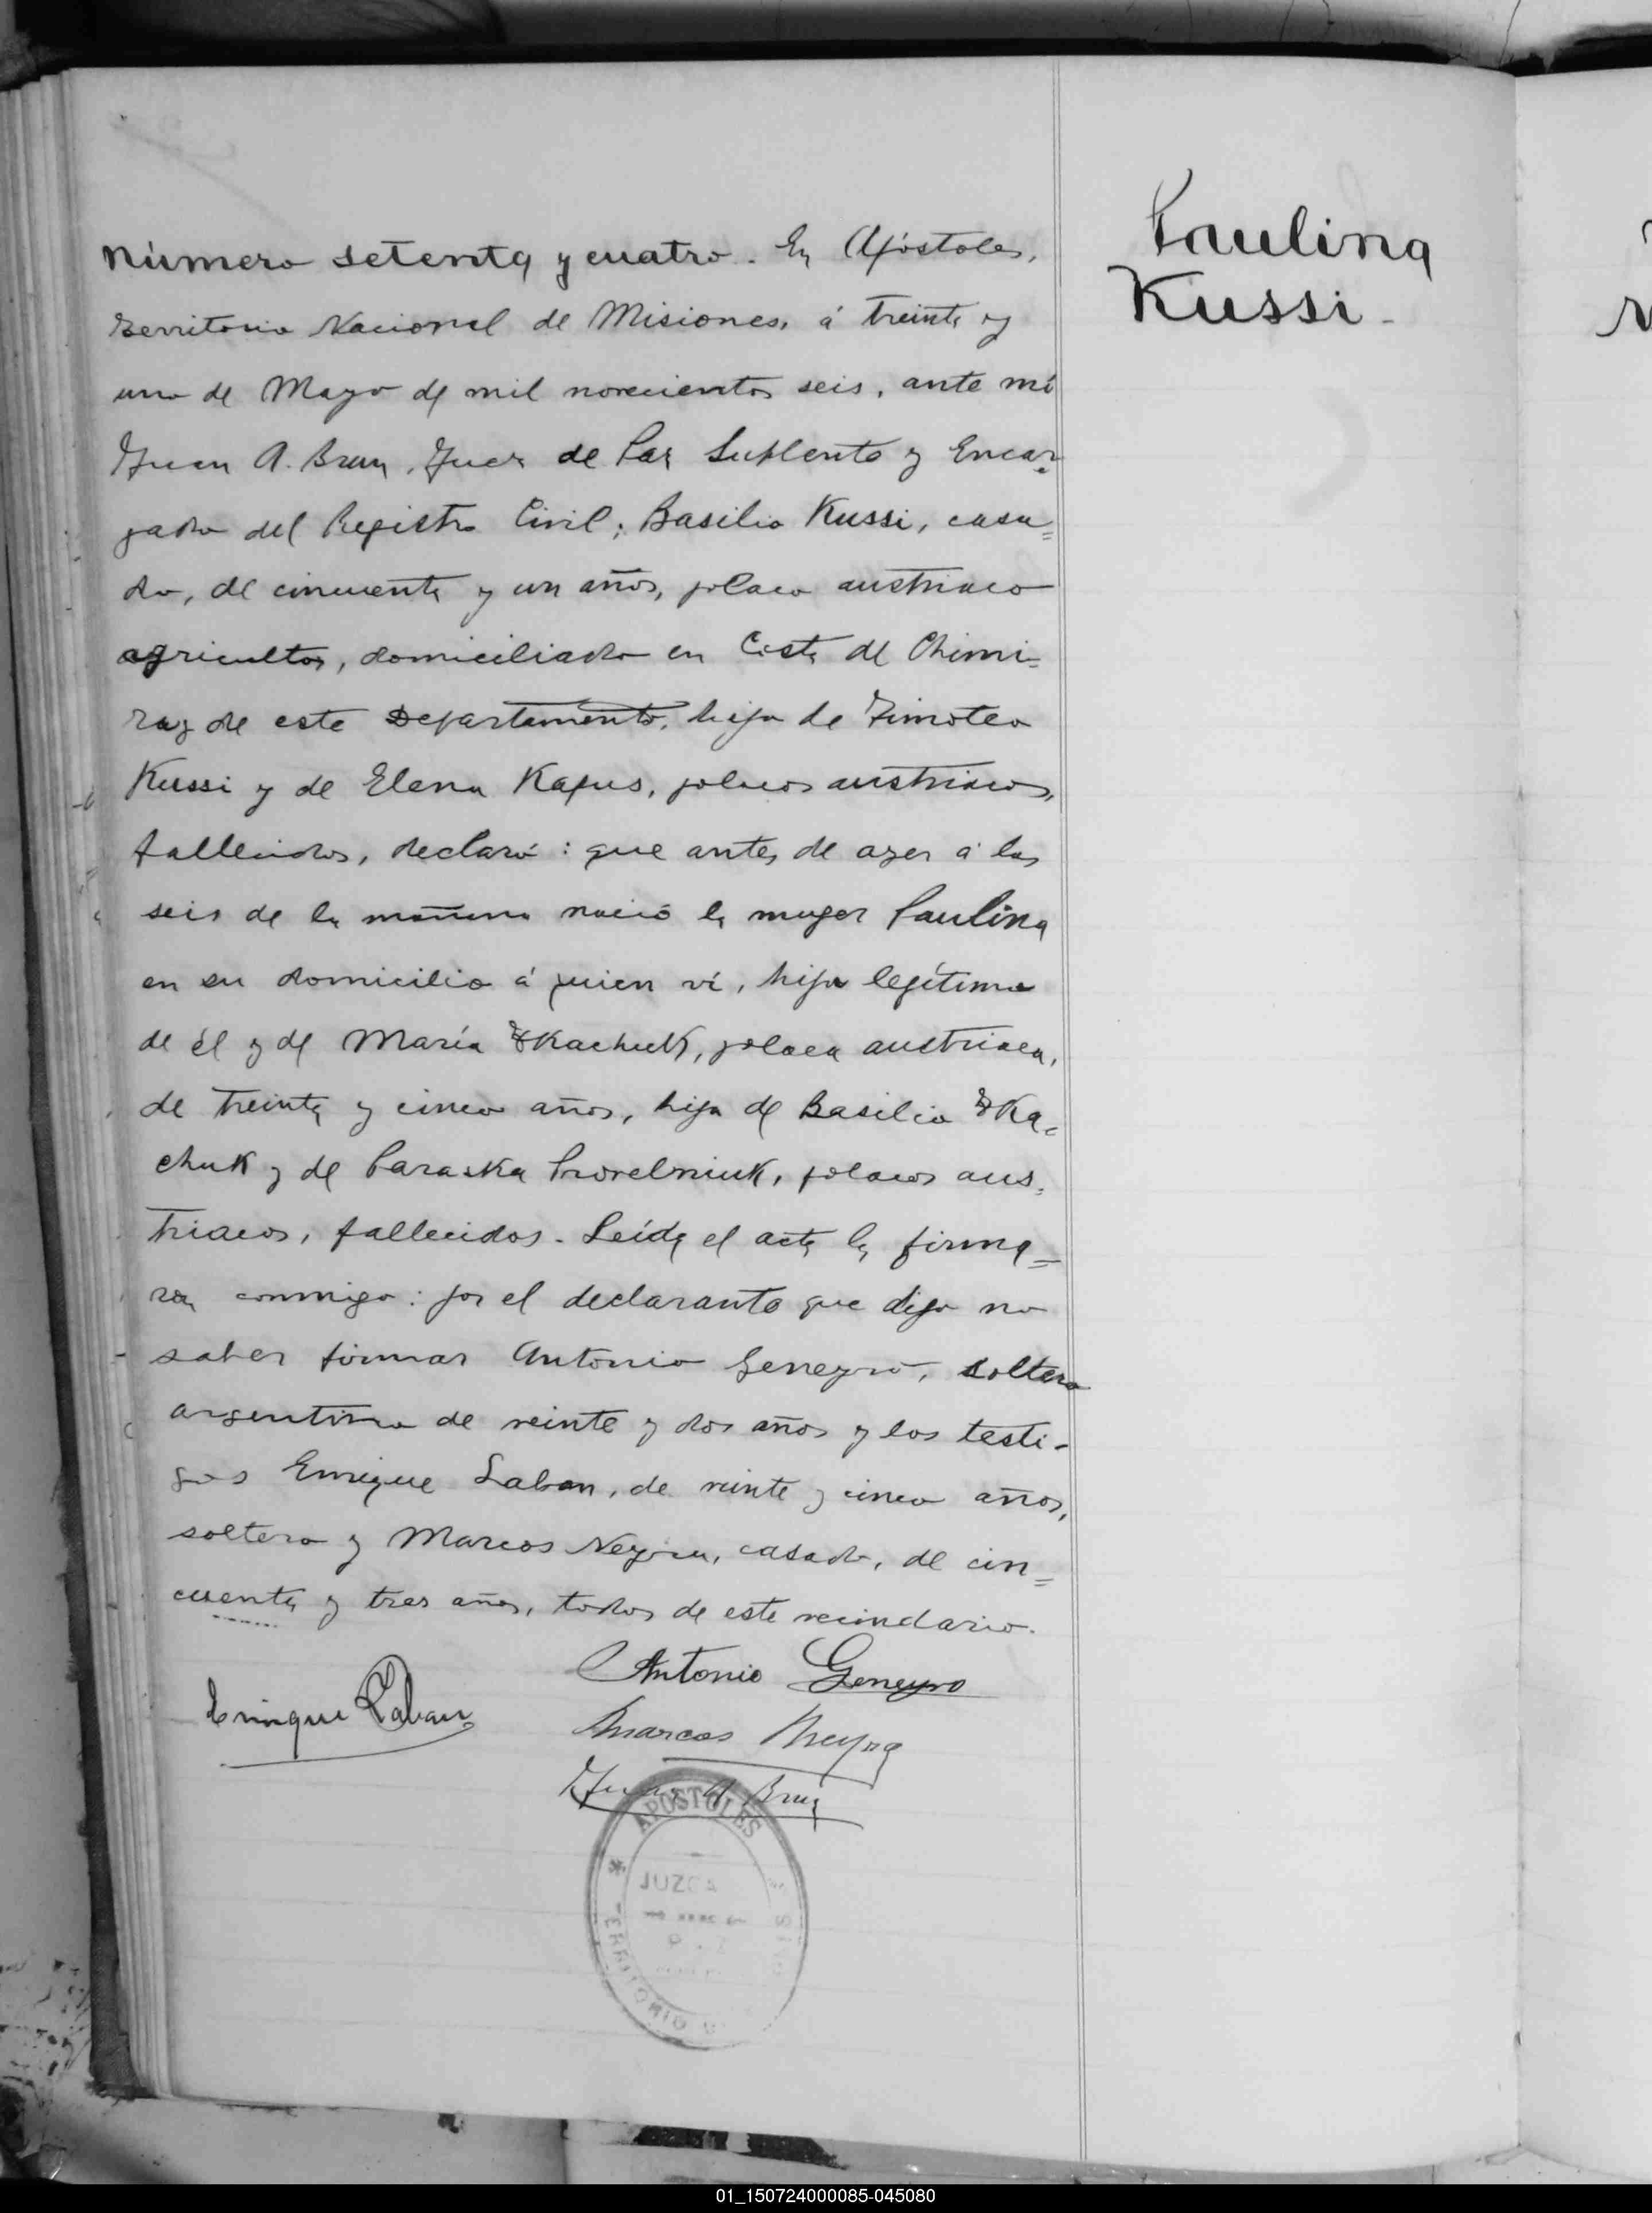 Paulina
Kussi.
Número setenta y cuatro. En Apóstoles,
Territorio Nacional de Misiones, á treinta y
uno de Mayo de mil novecientos seis, ante mí
Juan A. Brun, Juez de Paz Suplente y Encar-
gado del Registro Civil; Basilio Kussi, casa=
do, de cincuenta y un años, polaco austriaco
agricultor, domiciliado en Costa de Chimi=
ray de este Departamento, hijo de Timoteo
Kussi y de Elena Kapus, polacos austriacos,
fallecidos, declaró: que antes de ayer á las
seis de la mañana nació la muger Paulina
en su domicilio á quien ví, hija legítima
de él y de María Tkachuk, polaca austriaca,
de treinta y cinco años, hija de Basilio Tka=
chuk y de Paraska Provelniuk, polacos aus=
triacos, fallecidos. Leida el acta la firma=
ron conmigo: por el declarante que dijo no
saber firmar Antonio Geneyro, soltero
argentino de veinte y dos años y los testi-
gos Enrique Laban, de veinte y cinco años,
soltero y Marcos Neyra, casado, de cin=
cuenta y tres años, todos de este vecindario.
Antonio Geneyro
Enrique Laban
Marcos Neyra
Juan A Brun
APOSTOLES
JUZGA
TERRITORIO
01_150724000085-045080